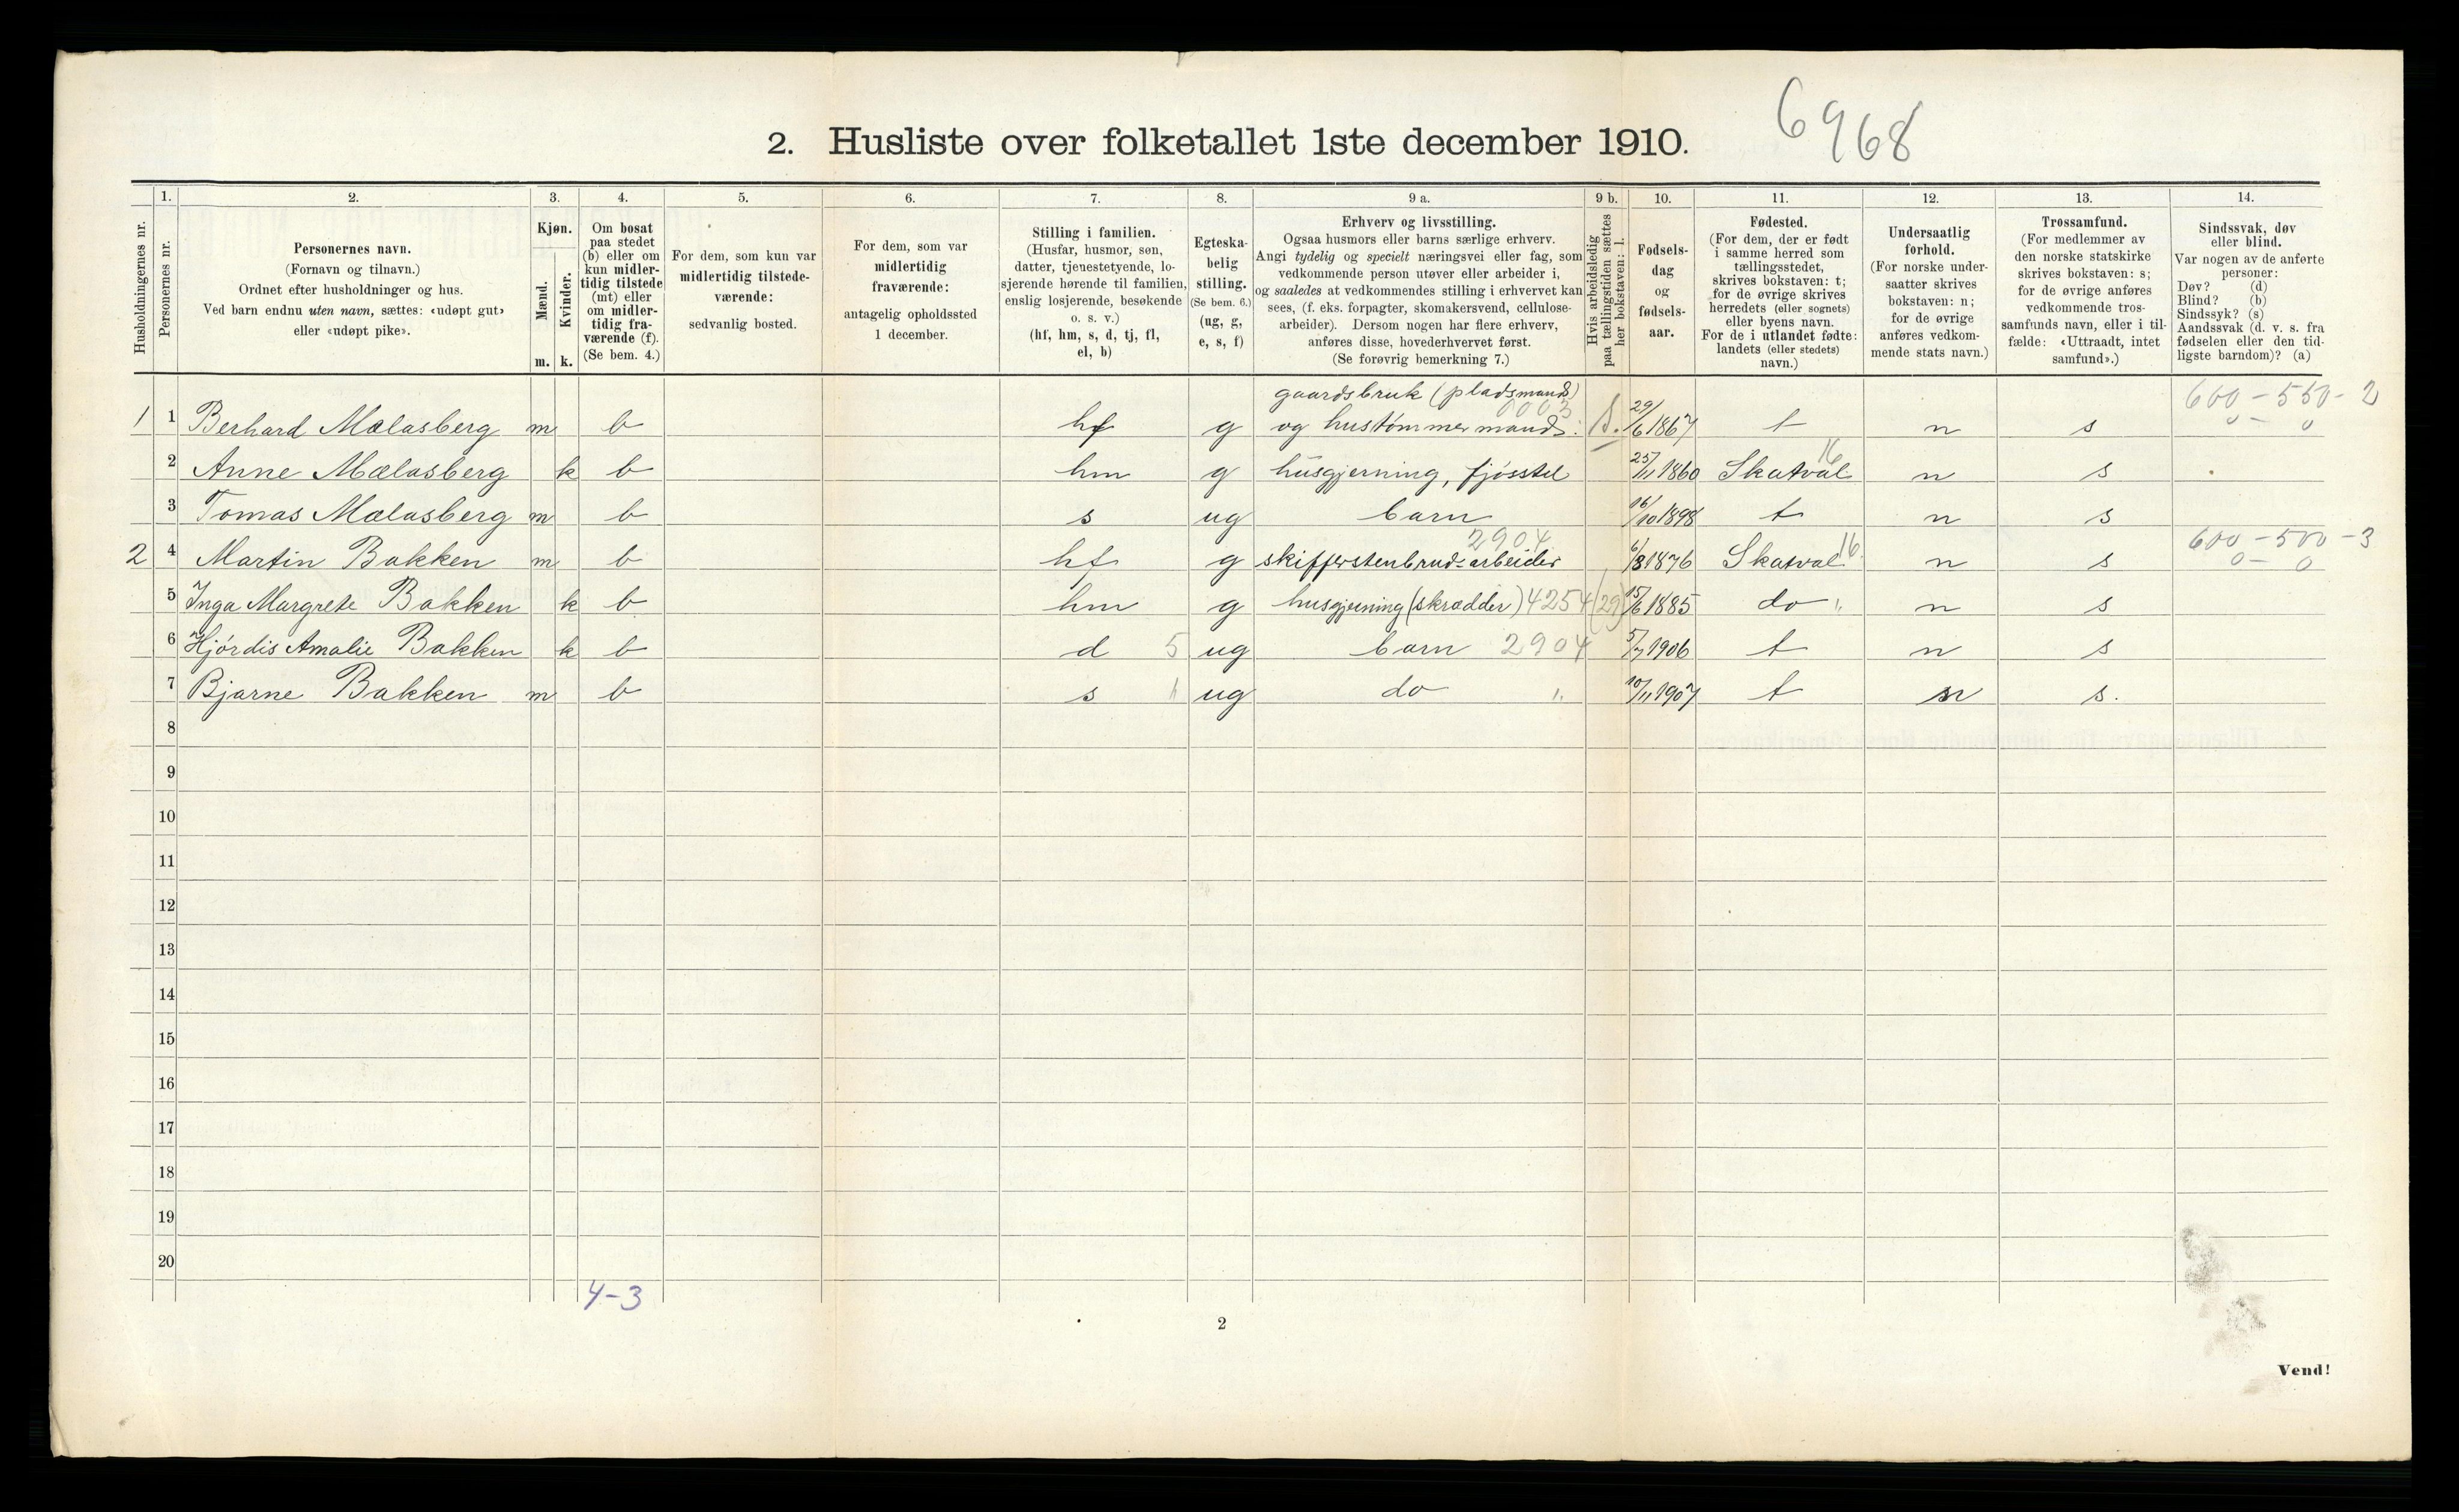 6968
2. Husliste over folketallet 1ste december 1910.
Husholdningernes nr.
1.
Personernes nr.
2.
Personernes navn.
(Fornavn og tilnavn.)
Ordnet efter husholdninger og hus.
Ved barn endnu uten navn, sættes: «udøpt gut»
eller «udøpt pike».
3.
Kjøn.
Mænd.
Kvinder.
m. k.
4.
Om bosat
paa stedet
(b) eller om
kun midler-
tidig tilstede
(mt) eller
om midler-
tidig fra-
værende (f).
(Se bem. 4.)
5.
For dem, som kun var
midlertidig tilstede-
værende:
sedvanlig bosted.
6.
For dem, som var
midlertidig
fraværende:
antagelig opholdssted
1 december.
7.
Stilling i familien.
(Husfar, husmor, søn,
datter, tjenestetyende, lo-
sjerende hørende til familien,
enslig losjerende, besøkende
o. s. v.)
(hf, hm, s, d, tj, fl,
el, b)
8.
Egteska-
belig
stilling.
(Se bem. 6.)
(ug, g,
e, s, f)
9 a.
Erhverv og livsstilling.
Ogsaa husmors eller barns særlige erhverv.
Angi tydelig og specielt næringsvei eller fag, som
vedkommende person utøver eller arbeider i,
og saaledes at vedkommendes stilling i erhvervet kan
sees, (f. eks. forpagter, skomakersvend, cellulose-
arbeider). Dersom nogen har flere erhverv,
anføres disse, hovederhvervet først.
(Se forøvrig bemerkning 7.)
9 b.
Hvis arbeidsledig
paa tællingstiden sættes
her bokstaven: l.
10.
Fødsels-
dag
og
fødsels-
aar.
11.
Fødested.
(For dem, der er født
i samme herred som
tællingsstedet,
skrives bokstaven: t;
for de øvrige skrives
herredets (eller sognets)
eller byens navn.
For de i utlandet fødte:
landets (eller stedets)
navn.)
12.
Undersaatlig
forhold.
(For norske under-
saatter skrives
bokstaven: n;
for de øvrige
anføres vedkom-
mende stats navn.)
13.
Trossamfund.
(For medlemmer av
den norske statskirke
skrives bokstaven: s;
for de øvrige anføres
vedkommende tros-
samfunds navn, eller i til-
fælde: «Uttraadt, intet
samfund».)
14.
Sindssvak, døv
eller blind.
Var nogen av de anførte
personer:
Døv? (d)
Blind? (b)
Sindssyk? (s)
Aandssvak (d. v. s. fra
fødselen eller den tid-
ligste barndom)? (a)
gaardsbruk (pladsmand) 600 - 550 - 2
1 1 Berhard Mælasberg m b hf g og hustømmermand 0003 29/6 1867 t n s 0 - 0
2 Anne Mælasberg k b hm g husgjerning, fjøsstel 25/11 1860 Skatval 16 n s
3 Tomas Mælasberg m b s ug barn 16/10 1898 t n s
2904 600 - 500 - 3
2 4 Martin Bakken m b hf g skifferstenbruds arbeider 6/8 1876 Skatval 16 n s 0 - 0
5 Inga Margrete Bakken k b hm g husgjerning (skrædder) 4254 (29) 15/6 1885 do " n s
6 Hjørdis Amalie Bakken k b d 5 ug barn 2904 5/7 1906 t n s
7 Bjarne Bakken m b s " ug do " 10/11 1907 t n s.
8
9
10
11
12
13
14
15
16
17
18
19
20
4-3
2
Vend!